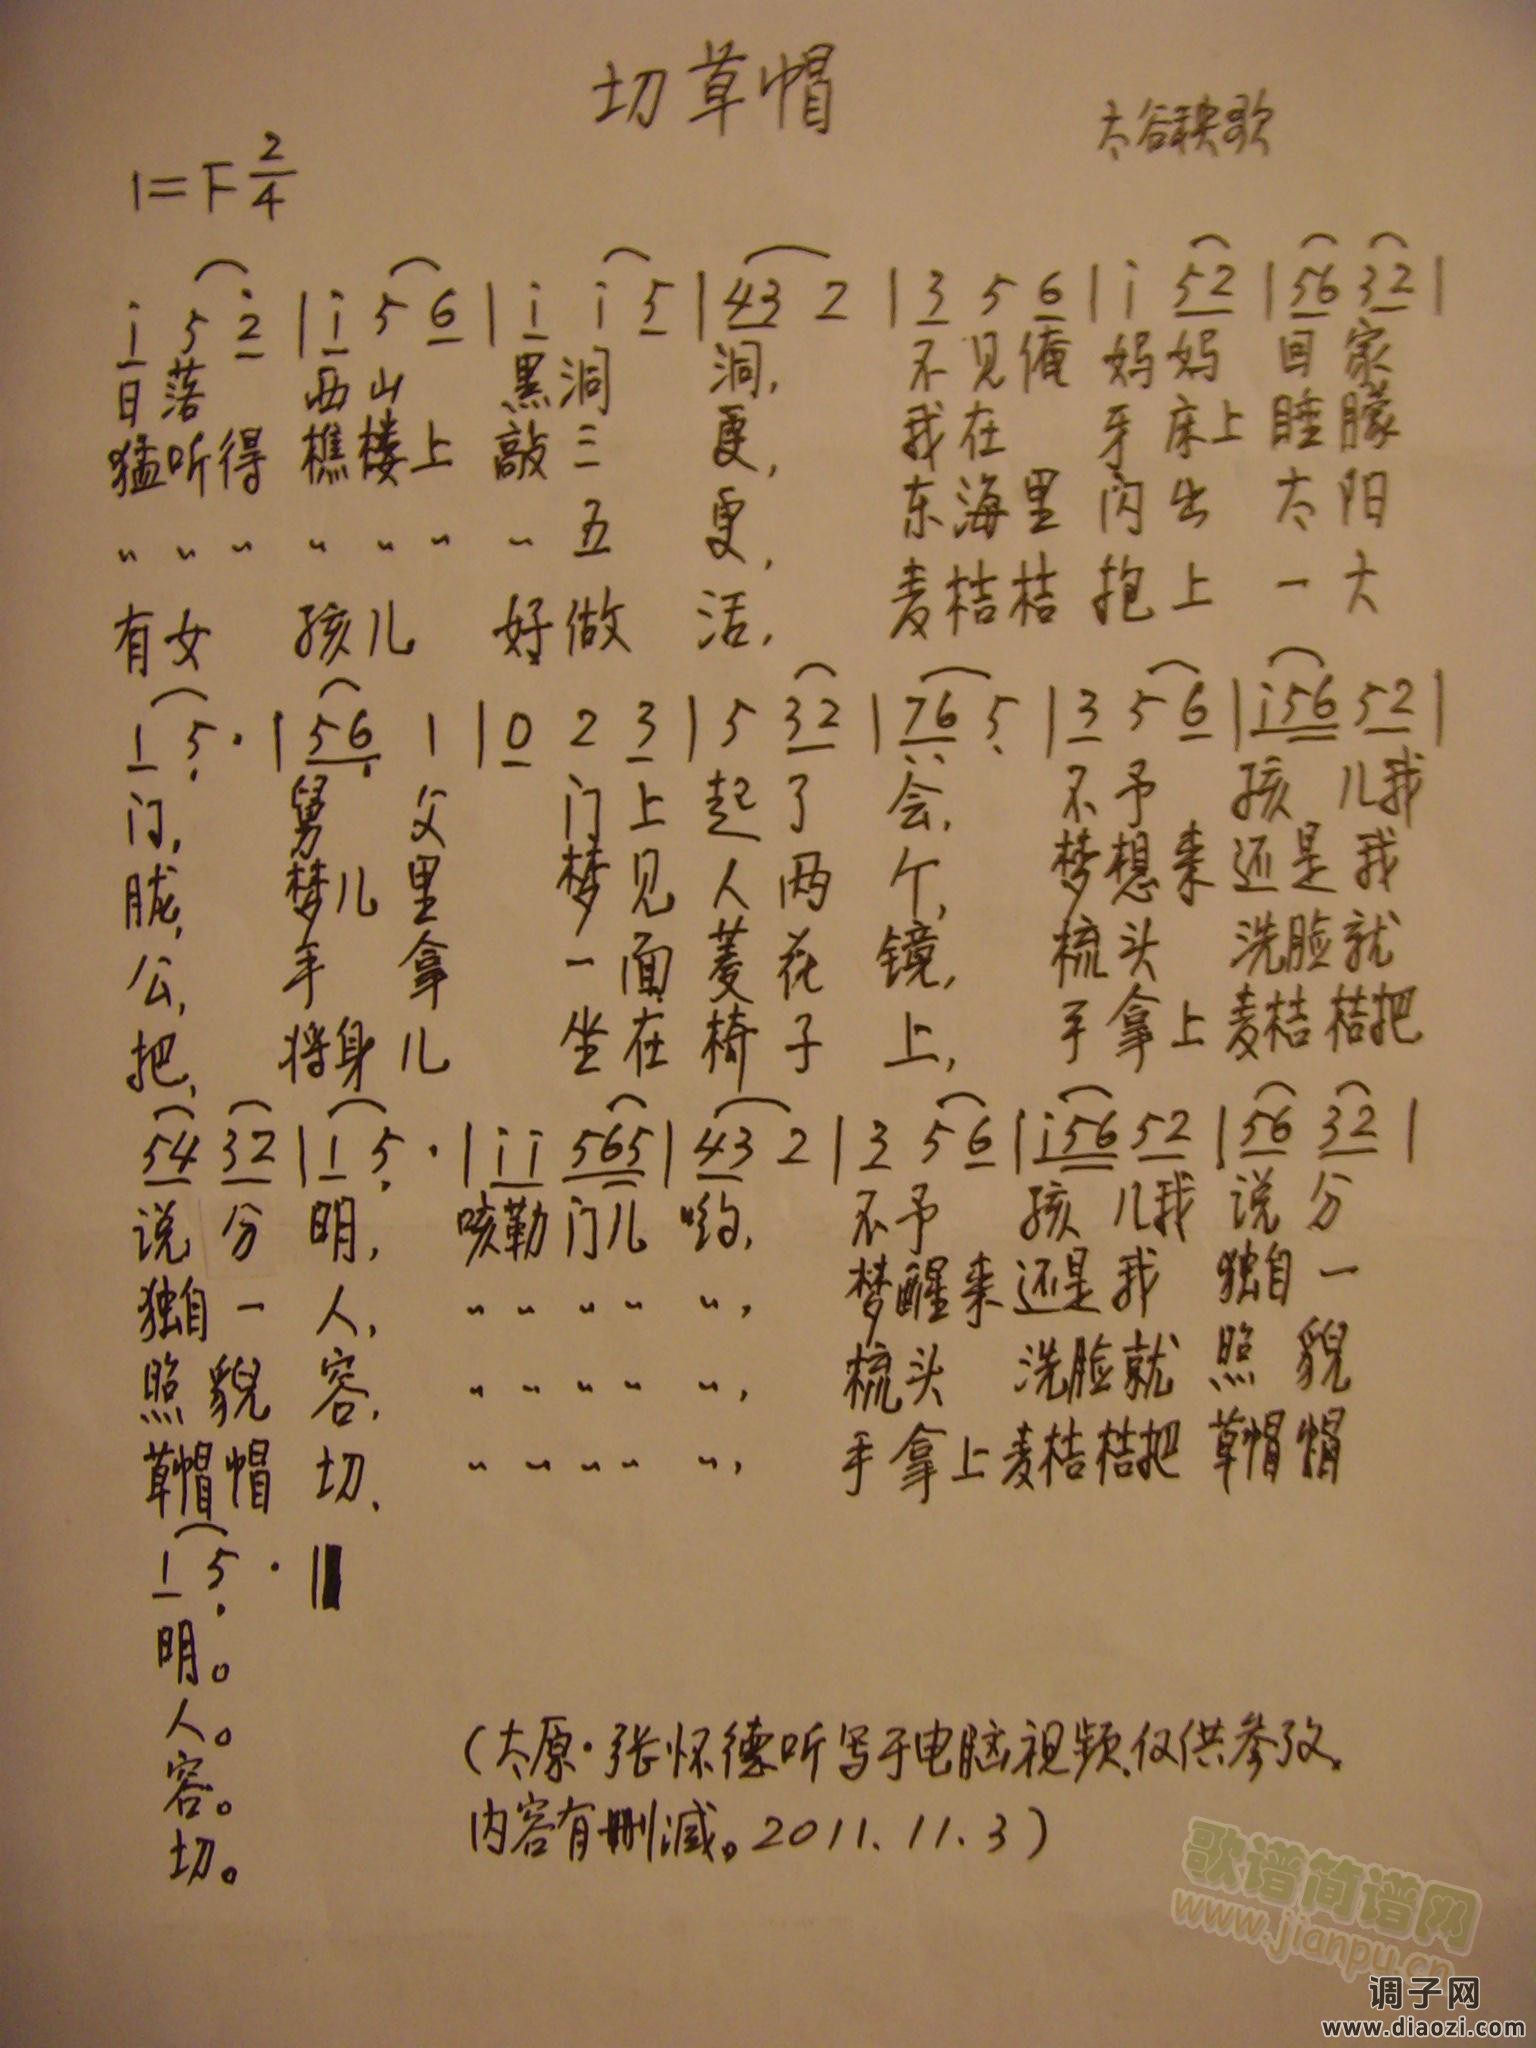 切草帽
太谷秧歌
1=F 2/4
i 5 2 | i 5 6 | i i 5 | 43 2 | 3 5 6 | i 52 | 56 32 |
日落 西山 黑洞 洞, 不见俺 妈妈 回家
猛听得 樵楼上 敲三 更, 我在 牙床上 睡朦
〃 〃 〃 〃 〃 〃 〃 五 更, 东海里 闪出 太阳
有女 孩儿 好做 活, 麦桔桔 抱上 一大
1 5 · | 56 1 | 0 2 3 | 5 32 | 76 5 | 3 5 6 | i56 52 |
门, 舅 父 门上 起了 会, 不予 孩 儿我
胧, 梦儿 里 梦见 人两 个, 梦想来 还是 我
公, 手 拿 一面 菱花 镜, 梳头 洗脸就
把, 将身儿 坐在 椅子 上, 手拿上 麦桔 桔把
54 32 | 1 5 · | ii 565 | 43 2 | 3 5 6 | i56 52 | 56 32 |
说 分 明, 咳勒门儿 哟, 不予 孩 儿我 说 分
独自 一 人, 〃 〃 〃 〃 〃, 梦醒来 还是 我 独自 一
照 貌 容, 〃 〃 〃 〃 〃, 梳头 洗脸就 照 貌
草帽帽 切, 〃 〃 〃 〃 〃, 手拿上 麦桔桔把 草帽帽
1 5 · ‖
明。
人。
容。
切。
(太原·张怀德听写于电脑视频,仅供参考,
内容有删减。2011.11.3)
歌谱简谱网
www.jianpu.cn
调子网
www.diaozi.com